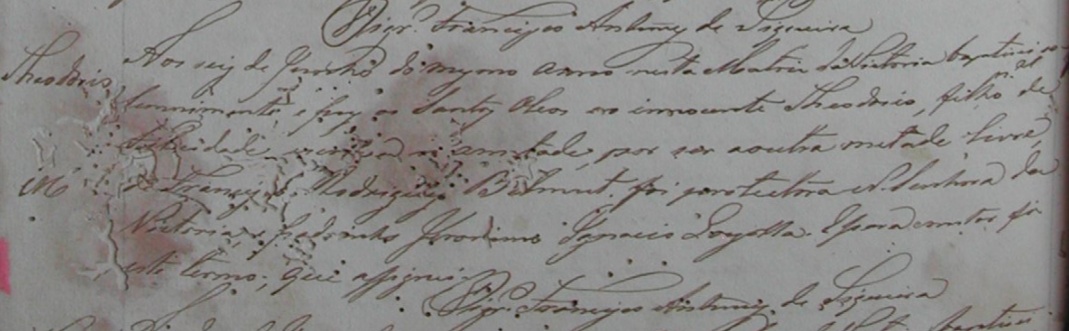 Vigr.º Francisco Antunes de Siqueira
Theodorio, Aos seis de Junho do mesmo anno nesta Matriz da Victoria baptisei so-
lennimente e puz os Santos Oleos ao innocente Theodorio, filho de
Felicidade, escrava na metade, por ser a outra metade livre,
de Francisco Rodrigues foi protectora N. Senhora da
Victoria e padrinho Jeronimo Ignacio Loyolla. E para constar fiz
este termo, que assignei.
Vigr.º Francisco Antunes de Siqueira